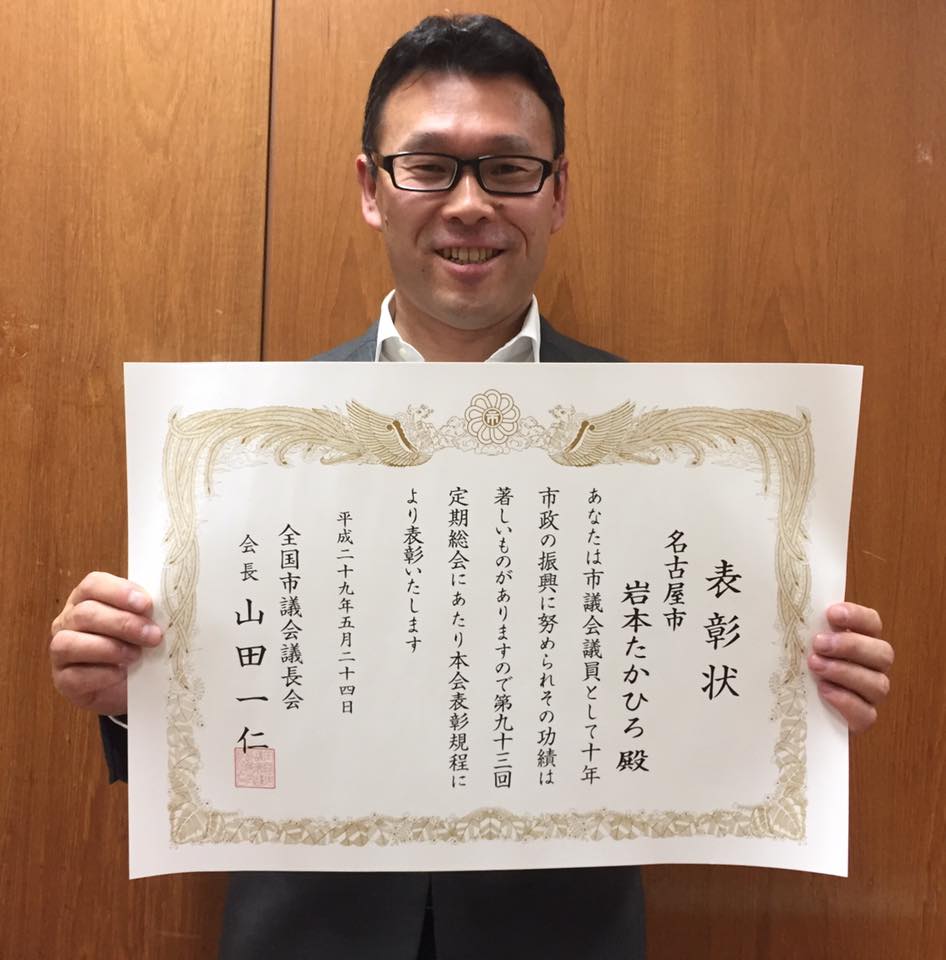 表彰状
名古屋市
岩本たかひろ殿
あなたは市議会議員として十年
市政の振興に努められその功績は
著しいものがありますので第九十三回
定期総会にあたり本会表彰規程に
より表彰いたします
平成二十九年五月二十四日
全国市議会議長会
会長 山田一仁